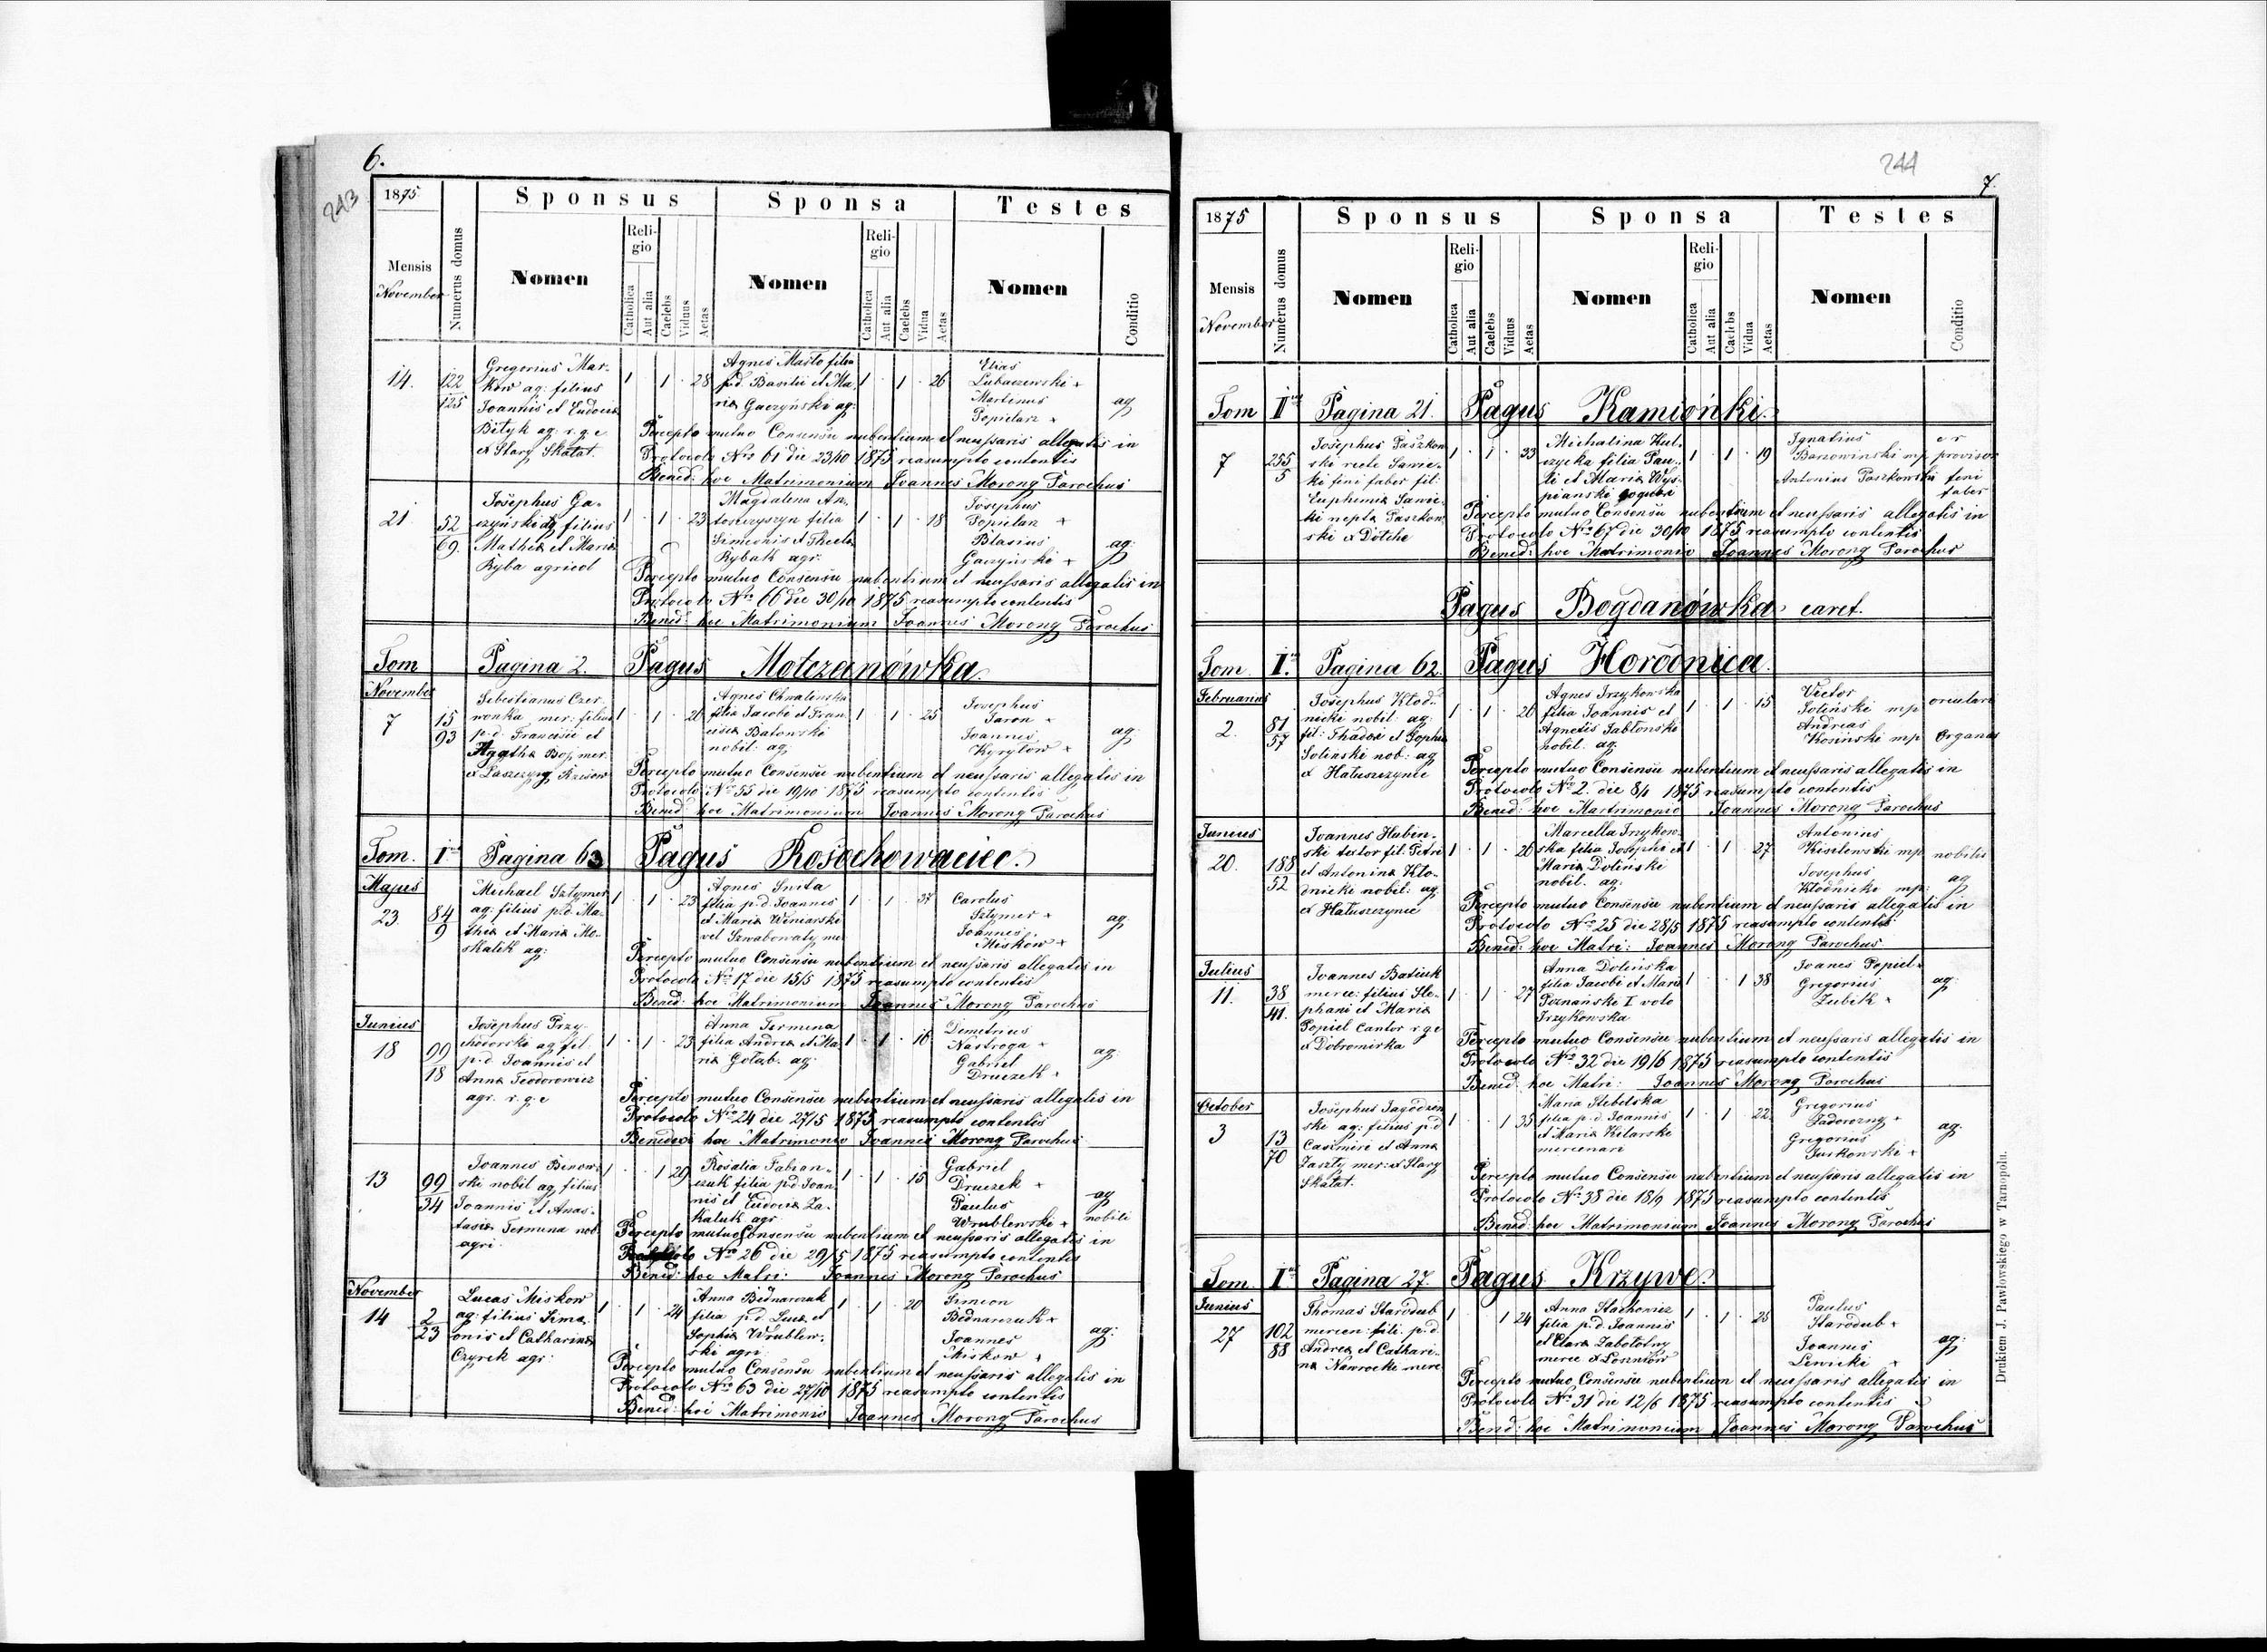 6.
243
1875
Mensis
November
Numerus domus
Sponsus
Nomen
Religio
Catholica
Aut alia
Caelebs
Viduus
Aetas
Sponsa
Nomen
Religio
Catholica
Aut alia
Caelebs
Vidua
Aetas
Testes
Nomen
Conditio
14.
122
125
Gregorius Mar-
ków ag: filius
Joannis et Eudocia
Bityk ag: r. g. c
ex Stary Skałat.
1 · 1 · 28
Agnes Masło filia
p.d. Basilii et Ma-
ria Gaczyński ag:
1 · 1 · 26
Elias
Lubaczewski +
Martinus
Popielarz +
ag
Percepto mutuo Consensu nubentium et neußaris allegatis in
Protocolo Nro 61 die 23/10 1875 reasumpto contentis
Bened: hoc Matrimonium Joannes Morong Parochus
21.
52
69.
Josephus Ga-
czyński ag filius
Mathia et Maria
Ryba agricol
1 · 1 · 23
Magdalena An-
toszczyszyn filia
Simeonis et Thecla
Rybak agr:
1 · 1 · 18
Josephus
Popielarz +
Blasius
Gaczyński +
ag:
Percepto mutuo Consensu nubentium et neußaris allegatis in
Protocolo Nro 66 die 30/10 1875 reasumpto contentis
Bened: hoc Matrimonium Joannes Morong Parochus
Tom Pagina 2. Pagus Mołczanówka
November
7
15
93
Sebestianus Czer-
wonka mer: filius
p.d. Francisci et
Agatha Boß mer:
ex Łaszczyny Rzeszow
1 · 1 · 26
Agnes Chmalenska
filia Jacobi et Fran-
cisca Batowski
nobil. ag.
1 · 1 · 25
Josephus
Jaron +
Joannes
Kyryłow +
ag:
Percepto mutuo Consensu nubentium et neußaris allegatis in
Protocolo Nro 55 die 19/10 1875 reasumpto contentis
Bened: hoc Matrimonium Joannes Morong Parochus
Tom. Ius Pagina 63 Pagus Rosochowaciec.
Majus
23.
84
9
Michael Sztymer
ag: filius p.d. Ma-
thia et Maria Mo-
skalik ag:
1 · 1 · 23
Agnes Snita
filia p.d. Joannes
et Maria Winiarski
vel Szwabowaty mer
1 · 1 · 37
Carolus
Sztymer +
Joannes
Miskow +
ag:
Percepto mutuo Consensu nubentium et neußaris allegatis in
Protocolo Nro 17 die 15/5 1875 reasumpto contentis
Bened: hoc Matrimonium Joannes Morong Parochus
Junius
18
99
18
Josephus Przy-
chodorski ag. fil.
p.d. Joannis et
Anna Teodorowicz
agr. r. g. c
1 · 1 · 23
Anna Termena
filia Andrea et Ma-
ria Gołab. ag:
1 · 1 · 16
Demetrius
Nastroga +
Gabriel
Druczek +
ag
Percepto mutuo Consensu nubentium et neußaris allegatis in
Protocolo Nro 24 die 27/5 1875 reasumpto contentis
Benedixi hoc Matrimonio Joannes Morong Parochus
13
99
34
Joannes Benow-
ski nobil ag. filius
Joannis et Anas-
tasia Termena nob
agri.
1 · 1 29
Rosalia Fabian-
czuk filia p.d. Joan-
nis et Eudocia Za-
kaluk agr:
1 · 1 · 15
Gabriel
Druczek +
Paulus
Wrublewski +
ag
nobili
Percepto mutuo Consensu nubentium et neußaris allegatis in
Protocolo Nro 26 die 29/5 1875 reasumpto contentis
Bened: hoc Matri: Joannes Morong Parochus
November
14
2
23
Lucas Miskow
ag: filius Sime-
onis et Catharina
Czyrek agr:
1 · 1 · 24
Anna Bednarczuk
filia p.d. Luca et
Sophia Wrublew-
ski agri
1 · 1 · 20
Simeon
Bednarczuk +
Joannes
Miskow +
ag:
Percepto mutuo Consensu nubentium et neußaris allegatis in
Protocolo Nro 63 die 27/10 1875 reasumpto contentis
Bened: hoc Matrimonio Joannes Morong Parochus
244
7.
1875
Mensis
November
Numerus domus
Sponsus
Nomen
Religio
Catholica
Aut alia
Caelebs
Viduus
Aetas
Sponsa
Nomen
Religio
Catholica
Aut alia
Caelebs
Vidua
Aetas
Testes
Nomen
Conditio
Tom IIus Pagina 21. Pagus Kamiónki.
7
255
5
Josephus Paszkow-
ski recte Sawic-
ki fini faber fil:
Euphemia Sawic-
ki nepta Paszkow-
ski ex Dołche
1 · 1 · 33
Michalina Kul-
czycka filia Pau-
li et Maria Wys-
pianski
1 · 1 · 19
Ignatius
Barzowinski mp
Antonius Paszkowski
c r
provisor
fini
faber
Percepto mutuo Consensu nubentium et neußaris allegatis in
Protocolo Nro 67 die 30/10 1875 reasumpto contentis
Bened: hoc Matrimonio Joannes Morong Parochus
Pagus Bogdanówka caret.
Tom Ius Pagina 62 Pagus Horodnica.
Februarius
2.
81
57
Josephus Kłod-
nicki nobil: ag:
fil: Thadai et Sophia
Soliński nob: ag
ex Hałuszczynie
1 · 1 · 26
Agnes Irzykowska
filia Joannis et
Agnetis Jabłonski
nobil. ag.
1 · 1 · 15
Victor
Soliński mp
Andreas
Kosiński mp
Organar
Percepto mutuo Consensu nubentium et neußaris allegatis in
Protocolo Nro 2. die 8/1 1875 reasumpto contentis
Bened: hoc Martrimonio Joannes Morong Parochus
Junius
20.
188
52
Joannes Hubin-
ski textor fil: Petri
et Antonina Kło-
dnicki nobil: ag:
ex Hałuszczynie
1 · 1 · 26
Marcella Irzykow-
ska filia Josephi et
Maria Doliński
nobil. ag:
1 · 1 · 27
Antonius
Kisilewski mp
Josephus
Kłodnicki mp:
nobilis
ag
Percepto mutuo Consensu nubentium et neußaris allegatis in
Protocolo Nro 25 die 28/5 1875 reasumpto contentis
Bened: hoc Matri: Joannes Morong Parochus
Julius
11.
38
41.
Joannes Batiuk
merce: filius Ste-
phani et Maria
Popiel Cantor r g c
ex Dobromirka
1 · 1 · 27
Anna Dolińska
filia Jacobi et Maria
Poznański I voto
Irzykowska
1 · 1 38
Joanes Popiel +
Gregorius
Zubik +
ag:
Percepto mutuo Consensu nubentium et neußaris allegatis in
Protocolo Nro 32 die 19/6 1875 reasumpto contentis
Bened: hoc Matri: Joannes Morong Parochus
October
3
13
70
Josephus Jagodzin-
ski ag: filius p.d
Casimiri et Anna
Zaszły mer: ex Stary
Skałat.
1 · 1 35
Maria Stebelska
filia p.d Joannis
et Maria Kitarski
mercenari
1 · 1 · 22
Gregorius
Zadorozny +
Gregorius
Jurkowski +
ag:
Percepto mutuo Consensu nubentium et neußaris allegatis in
Protocolo Nro 38 die 18/9 1875 reasumpto contentis
Bened: hoc Matrimonium Joannes Morong Parochus
Tom Ius Pagina 27. Pagus Krzywe.
Junius
27
102
88
Thomas Starodub
mercen: fili: p.d.
Andrea et Cathari-
na Nawrocki merc
1 · 1 24
Anna Stachowicz
filia p.d. Joannis
et Clara Zabołotny
merce ex Poznłów
1 · 1 · 25
Paulus
Starodub +
Joannis
Lewicki +
ag:
Percepto mutuo Consensu nubentium et neußaris allegatis in
Protocolo Nro 31 die 12/6 1875 reasumpto contentis
Bened: hoc Matrimonium Joannes Morong Parochus
Drukiem J. Pawłowskiego w Tarnopolu.